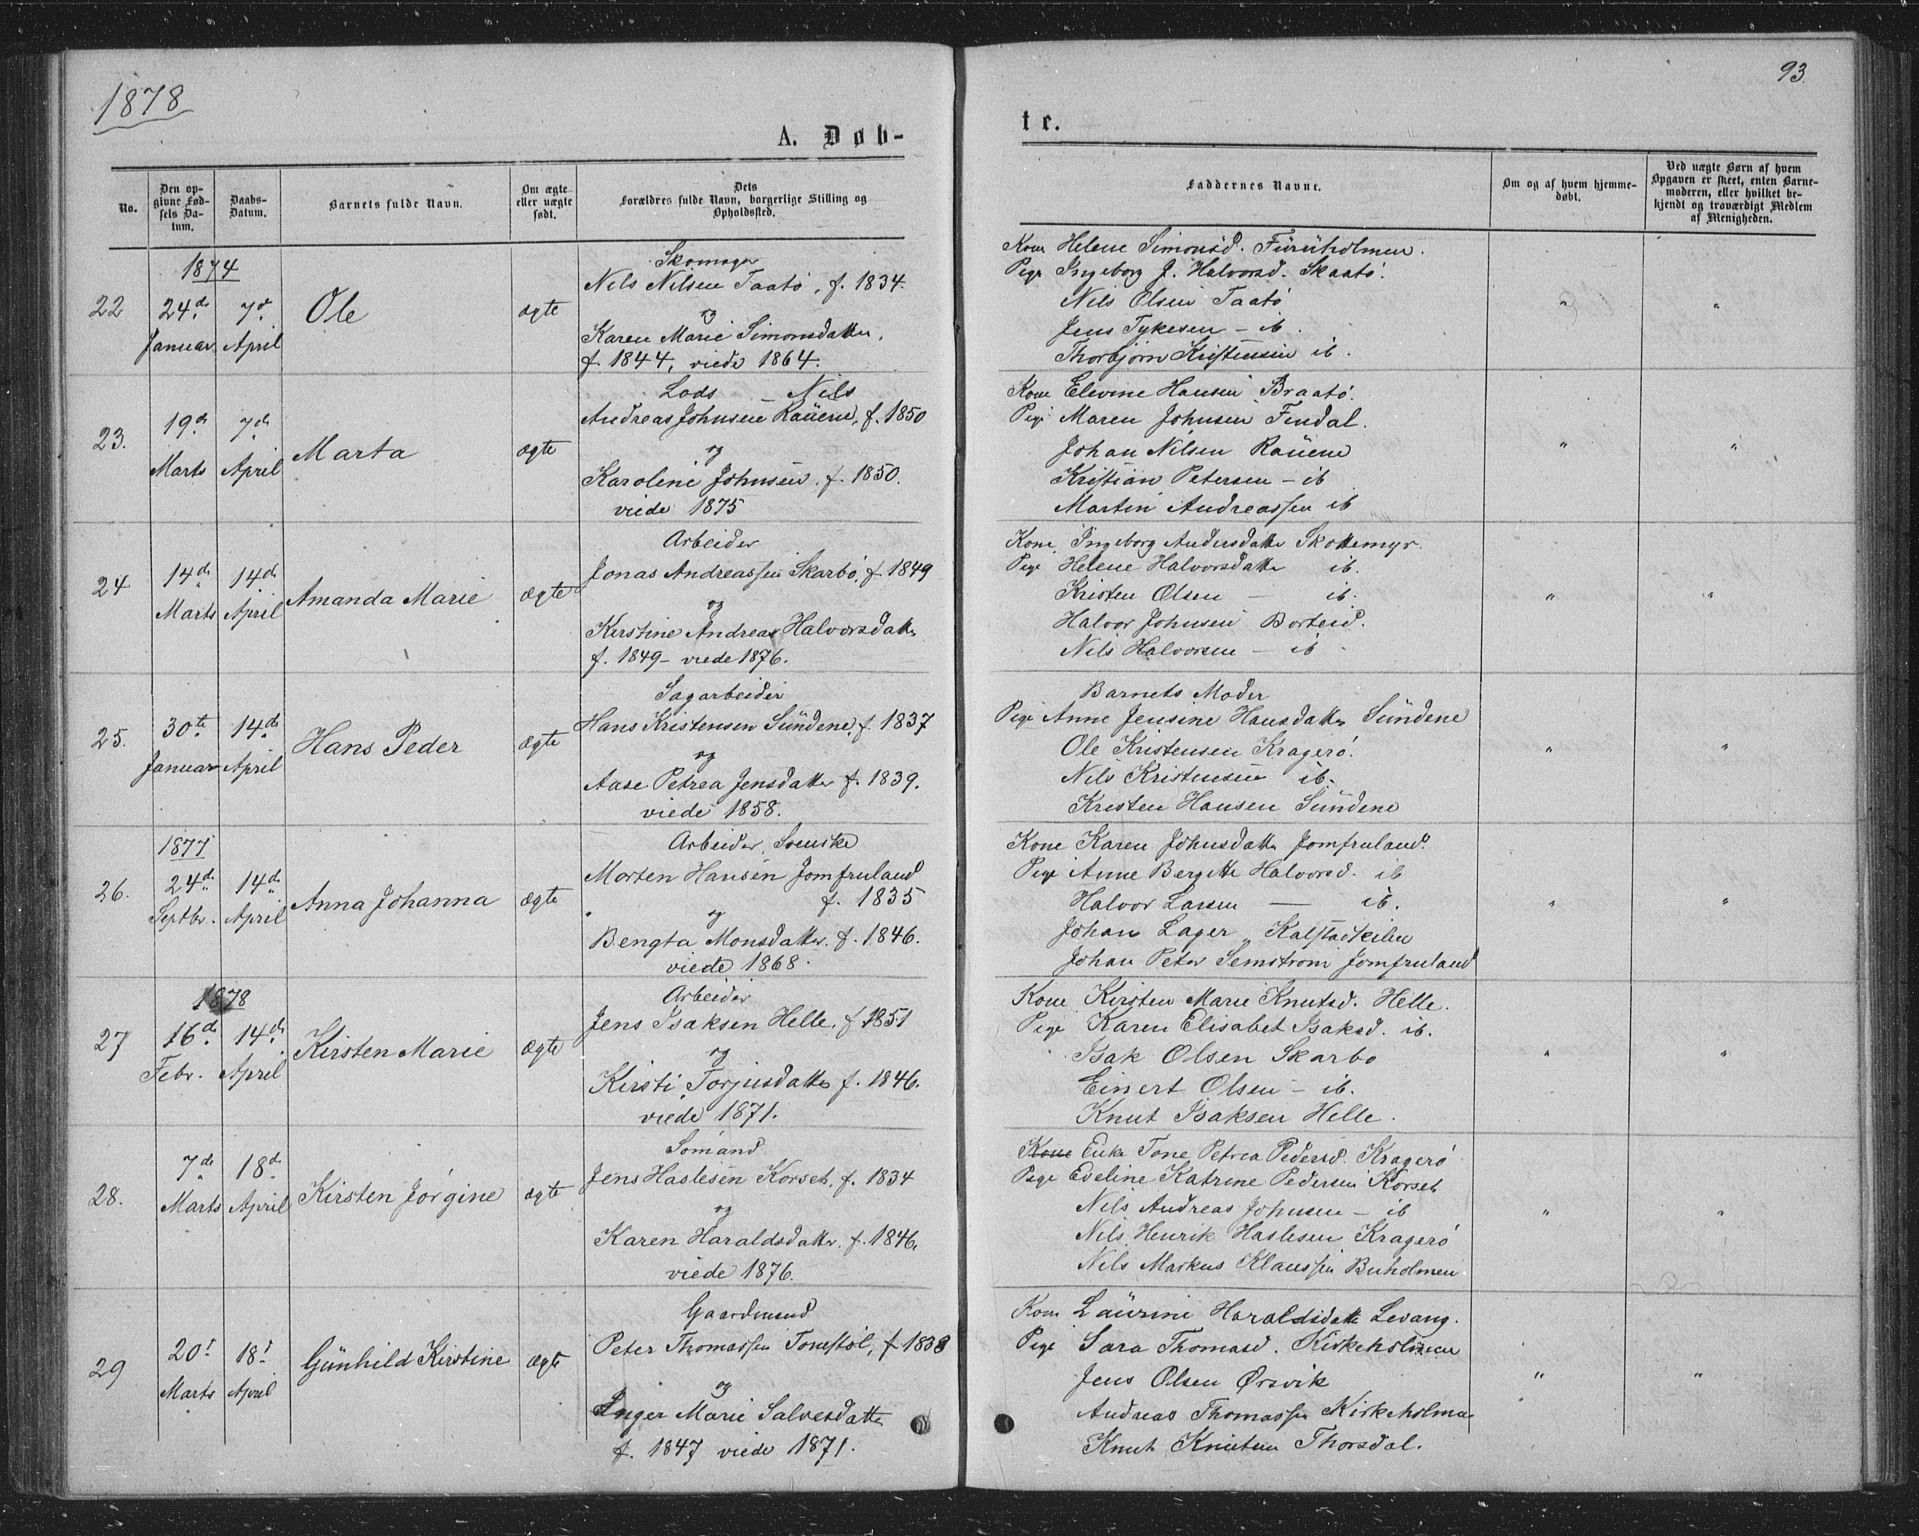 1878
93.
A. Døb-
te.
No.
Den op-
givne Fød-
sels Da-
tum.
Daabs-
Datum.
Barnets fulde Navn.
Om ægte
eller uægte
født.
Dets
Forældres fulde Navn, borgerlige Stilling og
Opholdssted.
Faddernes Navne.
Om og af hvem hjemme-
døbt.
Ved uægte Børn af hvem
Opgaven er skeet, enten Barne-
moderen, eller hvilket be-
kjendt og troværdigt Medlem
af Menigheden.
22
1874
24de
Januar
7de
April
Ole
ægte
Skomager
Nils Nilsen Taatø, f. 1834.
og
Karen Marie Simonsdatter,
f. 1844, viede 1864.
Kone Helene Simonsd. Furuholmen.
Pige Ingeborg J. Halvorsd. Skaatø.
Nils Olsen Taatø
Jens Tykesen - ib.
Thorbjørn Kristensen ib.
" "
23.
19de
Marts
7de
April
Marta
ægte
Lods - Nils
Andreas Johnsen Rauene, f. 1850
og
Karoline Johnsen. f. 1850.
viede 1875
Kone Elevine Hansen Braatø.
Pige Maren Johnsen Findal.
Johan Nilsen Rauene
Kristian Petersen - ib
Martin Andreassen ib
" "
24
14de
Marts
14de
April
Amanda Marie
ægte
Arbeider
Jonas Andreassen Skarbo, f. 1849
og
Kirstine Andrea Halvorsdatter
f. 1849 - viede 1876.
Kone Ingeborg Andersdatter Skottemyr.
Pige Helene Halvorsdatter ib.
Kristen Olsen - ib.
Halvor Johnsen Borteid.
Nils Halvorsen - ib
" "
25.
30te
Januar
14de
April
Hans Peder
ægte
Sagarbeider
Hans Kristensen Sundene, f. 1837
og
Aase Petrea Jensdatter f. 1839.
viede 1858.
Barnets Moder
Pige Anne Jensine Hansdatter Sundene
Ole Kristensen Kragerø.
Nils Kristensen ib.
Kristen Hansen Sundene
" "
26.
1877
24de
Septbr.
14de
April
Anna Johanna
ægte
Arbeider, Svenske
Morten Hansen Jomfruland
f. 1835
og
Bengta Monsdatter. f. 1846.
viede 1868.
Kone Karen Johnsdatter Jomfruland.
Pige Anne Bergitte Halvorsd. ib
Halvor Larsen - ib.
Johan Lager, Kalstadkilen
Johan Peter Semstrom Jomfruland
" "
27
1878
16de
Febr.
14de
April
Kirsten Marie
ægte
Arbeider
Jens Isaksen Helle, f. 1851
og
Kirsti Torjusdatter f. 1846.
viede 1871.
Kone Kirsten Marie Knutsd. Helle.
Pige Karen Elisabet Isaksd. ib.
Isak Olsen Skarbo
Einert Olsen - ib.
Knut Isaksen Helle.
" "
28.
7de
Marts
18de
April
Kirsten Jørgine
ægte
Sømand
Jens Haslesen Korset, f. 1834
og
Karen Haraldsdatter. f. 1846.
viede 1876.
Kone Enke Tone Petrea Pedersd. Kragerø
Pige Eveline Katrine Pedersen Korset
Nils Andreas Johnsen - ib
Nils Henrik Haslesen Kragerø
Nils Markus Klaussen Buholmen
" "
29
20de
Marts
18de
April
Gunhild Kirstine
ægte
Gaardmand
Peter Thomassen Tonestøl, f. 1838
og
Inger Marie Salvesdatter
f. 1847 viede 1871.
Kone Laurine Haraldsdatter Levang.
Pige Sara Thomasd. Kirkeholmen
Jens Olsen Ørsvik
Andreas Thomassen Kirkeholmen
Knut Knutsen Thorsdal.
" "